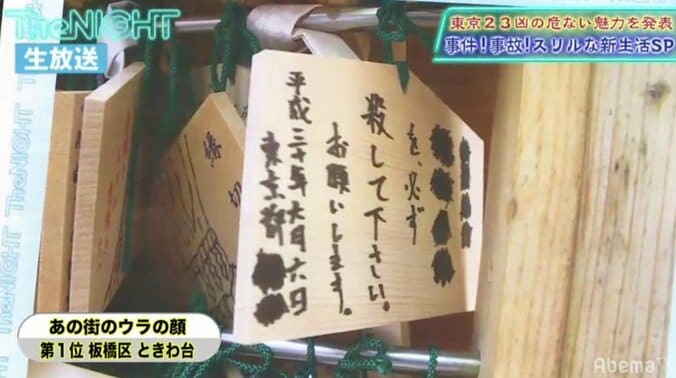 TheNIGHT
生放送
東京23凶の危ない魅力を発表
事件!事故!スリルな新生活SP
を、必ず
殺して下さい。
お願いします。
平成三十年六月六日
東京都
縁切
あの街のウラの顔
第1位 板橋区 ときわ台
TheNIGHT
AbemaTV